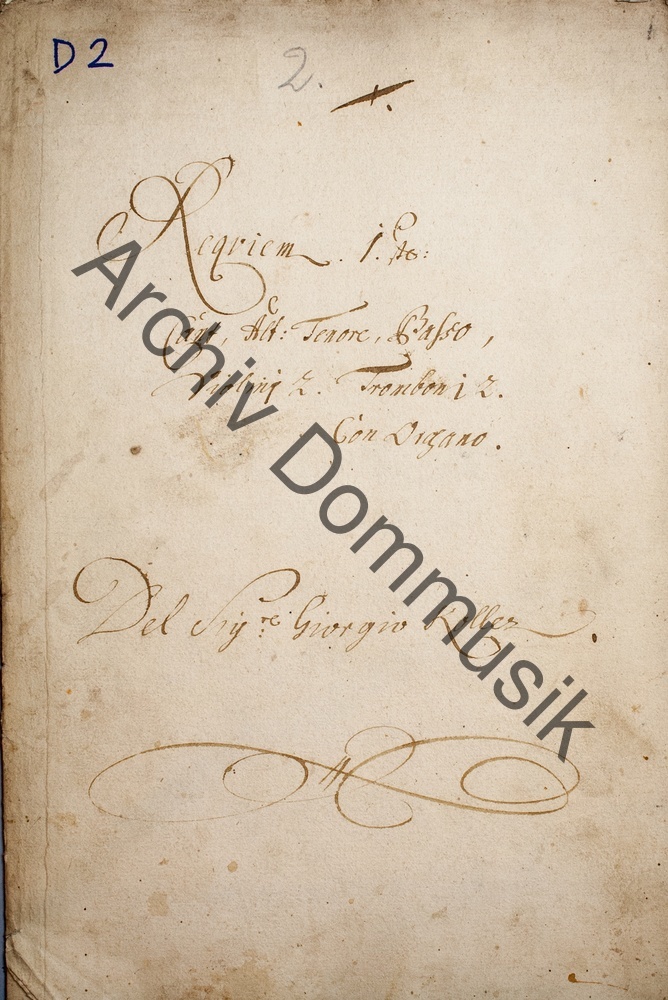 D 2
2.
Requiem. 1.
Cant, Alt: Tenore, Basso,
Violini 2. Tromboni 2.
Con Organo.
Del Sigre: Giorgio Koller
Archiv Dommusik